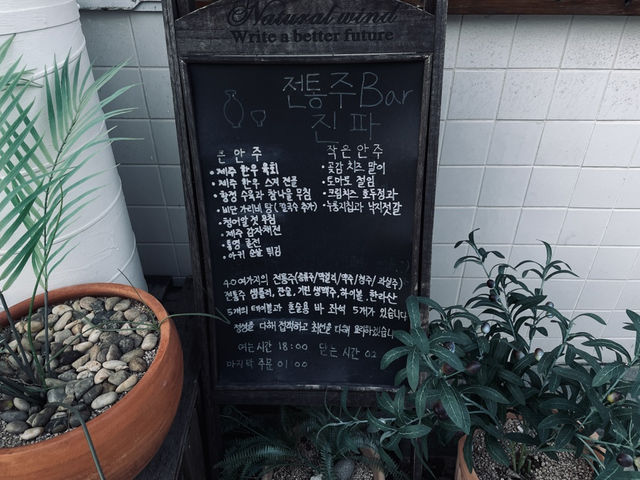 Natural wind
Write a better future
전통주 Bar
진 파
큰 안주
• 제주 한우 육회
• 제주 한우 스지 전골
• 항정 수육과 참나물 무침
• 비단 가리비 탕 (칼국수 추가)
• 청어알 젓 무침
• 제주 감자채전
• 통영 굴전
• 아귀 순살 튀김
작은 안주
• 곶감 치즈 말이
• 토마토 절임
• 크림치즈 호두정과
• 누룽지칩과 낙지젓갈
40여가지의 전통주(증류주/막걸리/맥주/청주/과실주)
전통주 샘플러, 잔술, 기린 생맥주, 하이볼, 한라산
5개의 테이블과 혼술용 바 좌석 5개가 있습니다
정성을 다해 접객하고 최선을 다해 요리하겠습니다
여는 시간 18:00 닫는 시간 02
마지막 주문 01:00